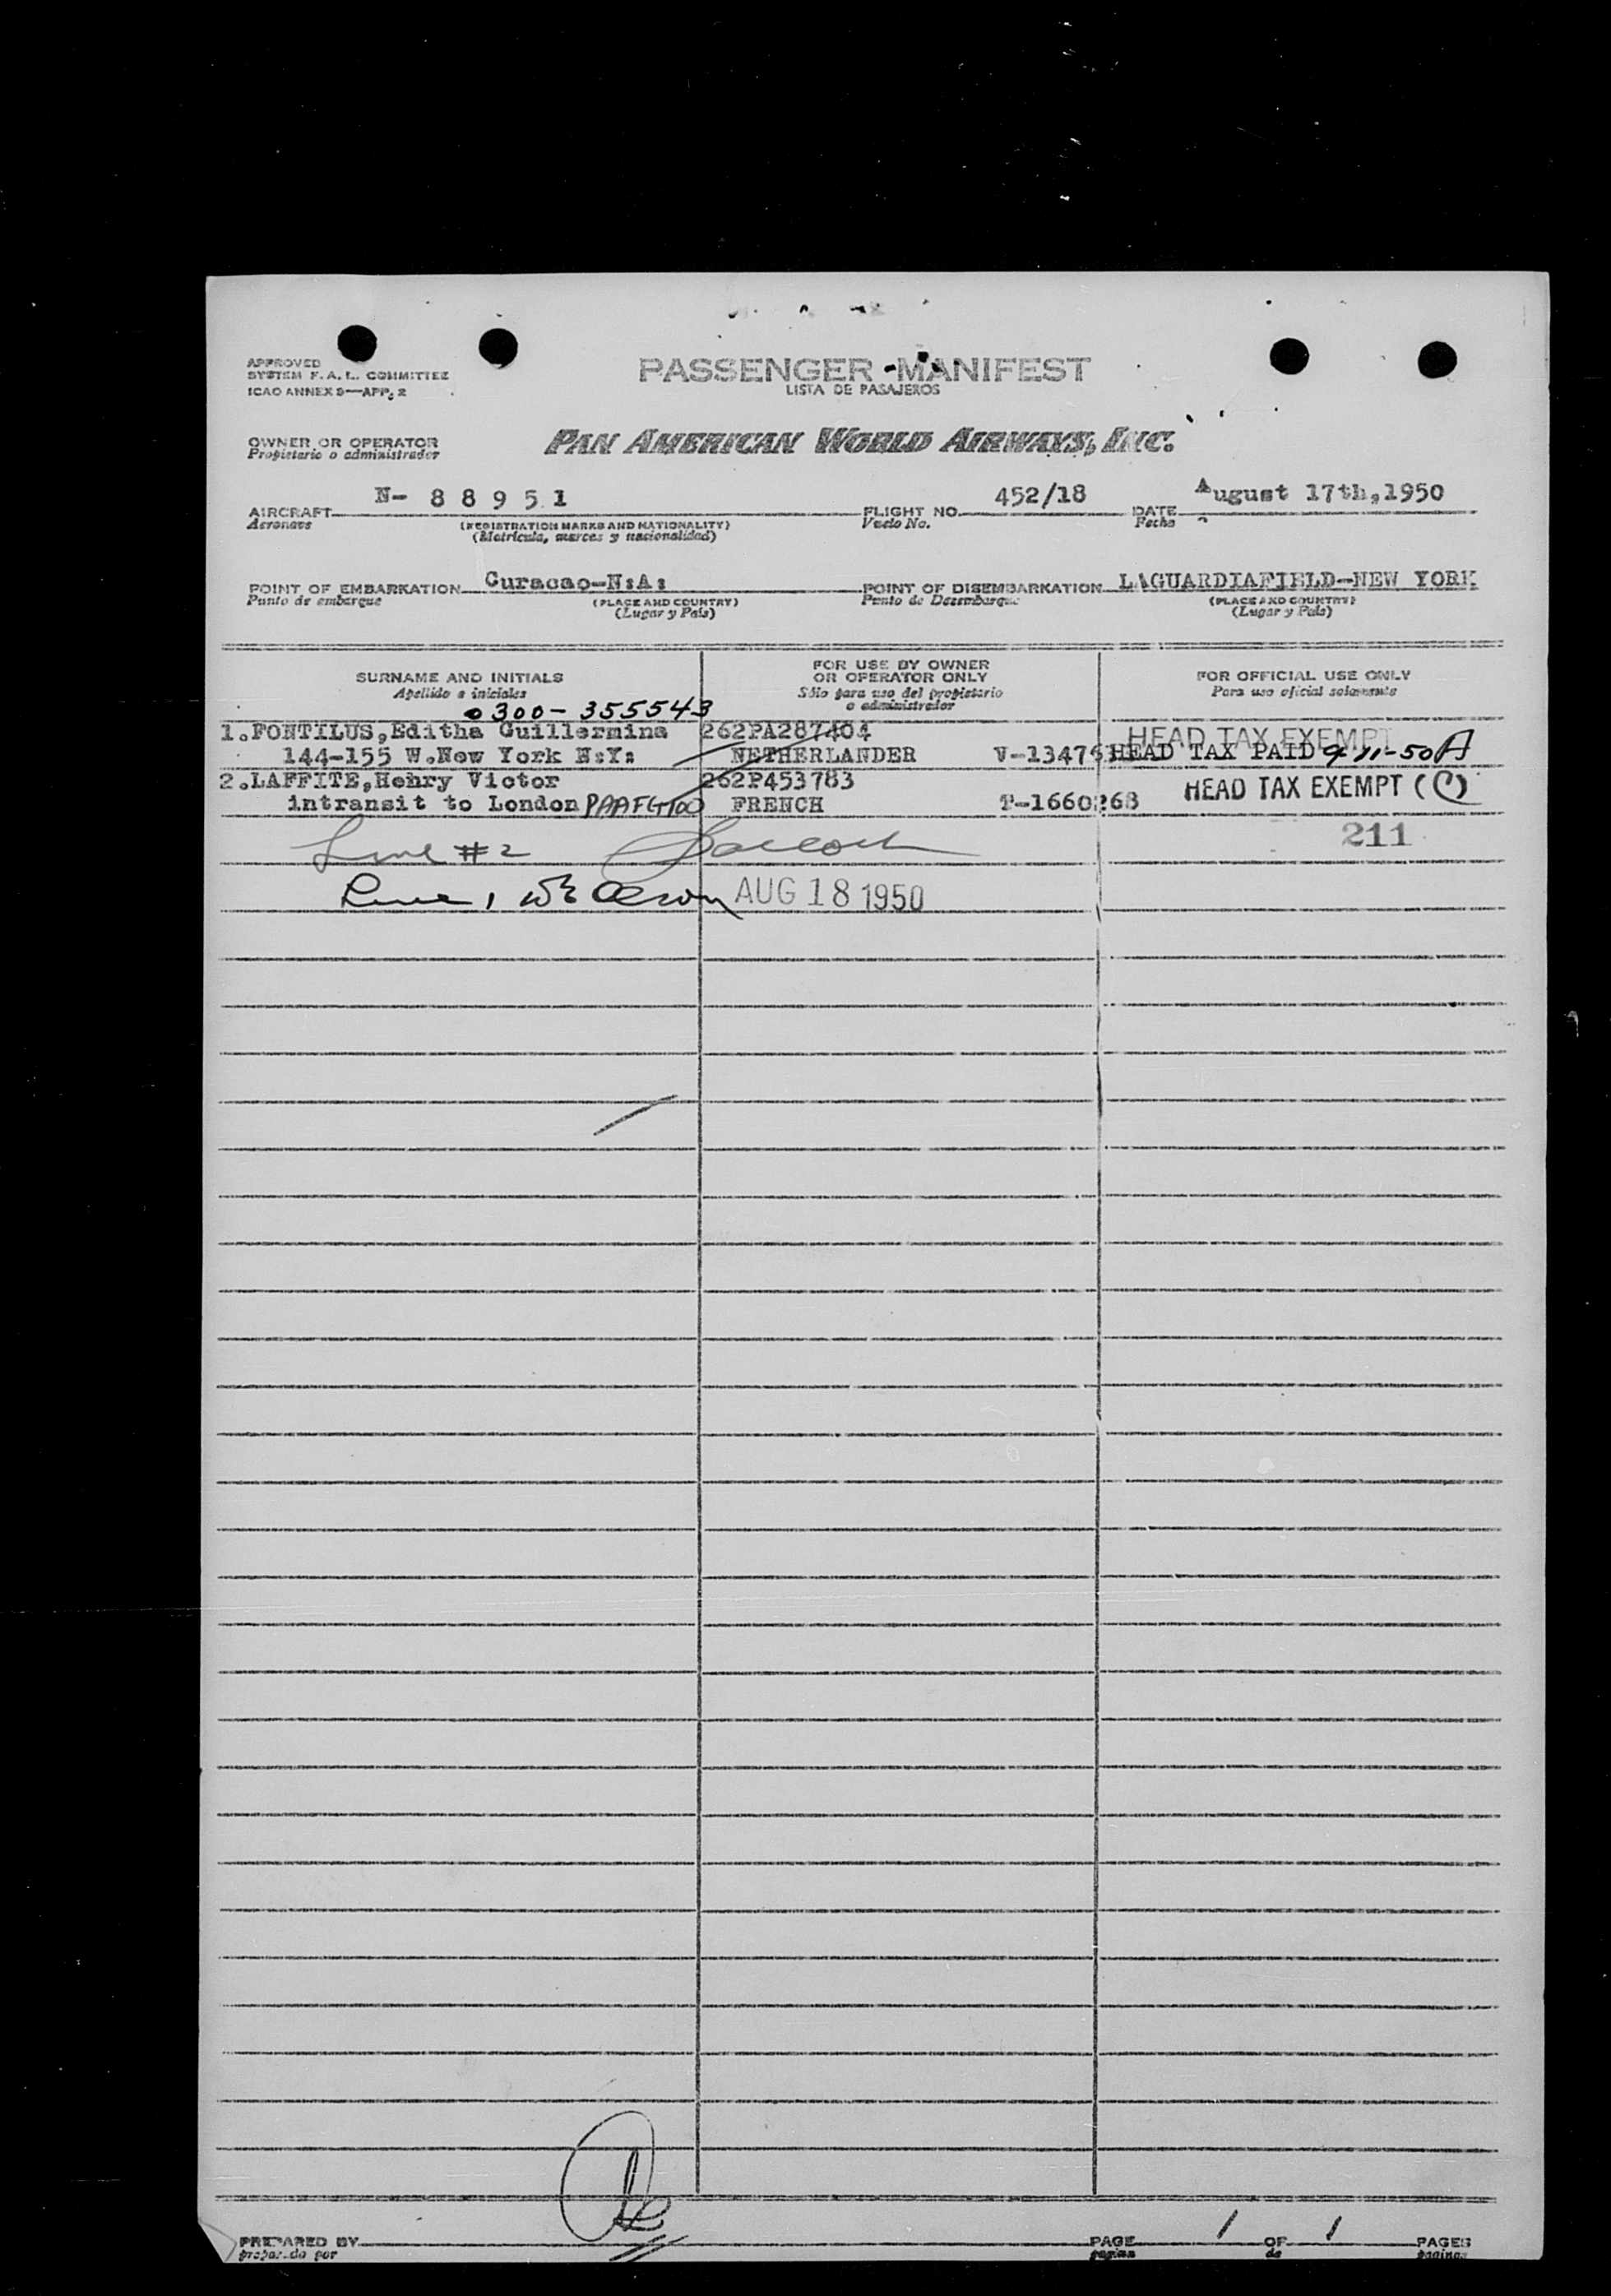 APPROVED
SYSTEM F. A. L. COMMITTEE
ICAO ANNEX 9—APP. 2
PASSENGER MANIFEST
LISTA DE PASAJEROS
OWNER OR OPERATOR
Propietario o administrador
PAN AMERICAN WORLD AIRWAYS, INC.
AIRCRAFT N- 8 8 9 5 1 FLIGHT NO. 452/18 DATE August 17th,1950
Aeronave (REGISTRATION MARKS AND NATIONALITY) Vuelo No. Fecha
(Matrícula, marcas y nacionalidad)
POINT OF EMBARKATION Curacao-N:A: POINT OF DISEMBARKATION LAGUARDIAFIELD-NEW YORK
Punto de embarque (PLACE AND COUNTRY) Punto de Desembarque (PLACE AND COUNTRY)
(Lugar y País) (Lugar y País)
SURNAME AND INITIALS FOR USE BY OWNER OR OPERATOR ONLY FOR OFFICIAL USE ONLY
Apellido e iniciales Sólo para uso del propietario o administrador Para uso oficial solamente
0300-355543
1.FONTILUS,Editha Guillermina 262PA287404 HEAD TAX EXEMPT
144-155 W.New York N:Y: NETHERLANDER V-13476 HEAD TAX PAID 4-11-50 A
2.LAFFITE,Henry Victor 262P453783
intransit to London PAAFGT100 FRENCH T-1660268 HEAD TAX EXEMPT (C)
Line #2 211
Line 1 AUG 18 1950
PREPARED BY PAGE 1 OF 1 PAGES
preparado por pagina de paginas